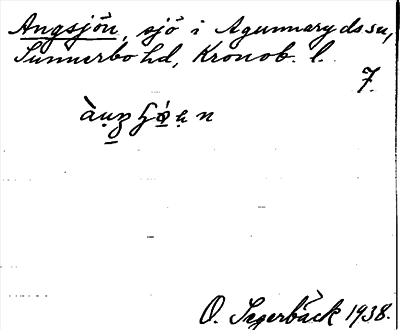 Angsjön, sjö i Agunnaryds sn,
Sunnerbo hd, Kronob. l.
7.
O. Segerbäck 1938.